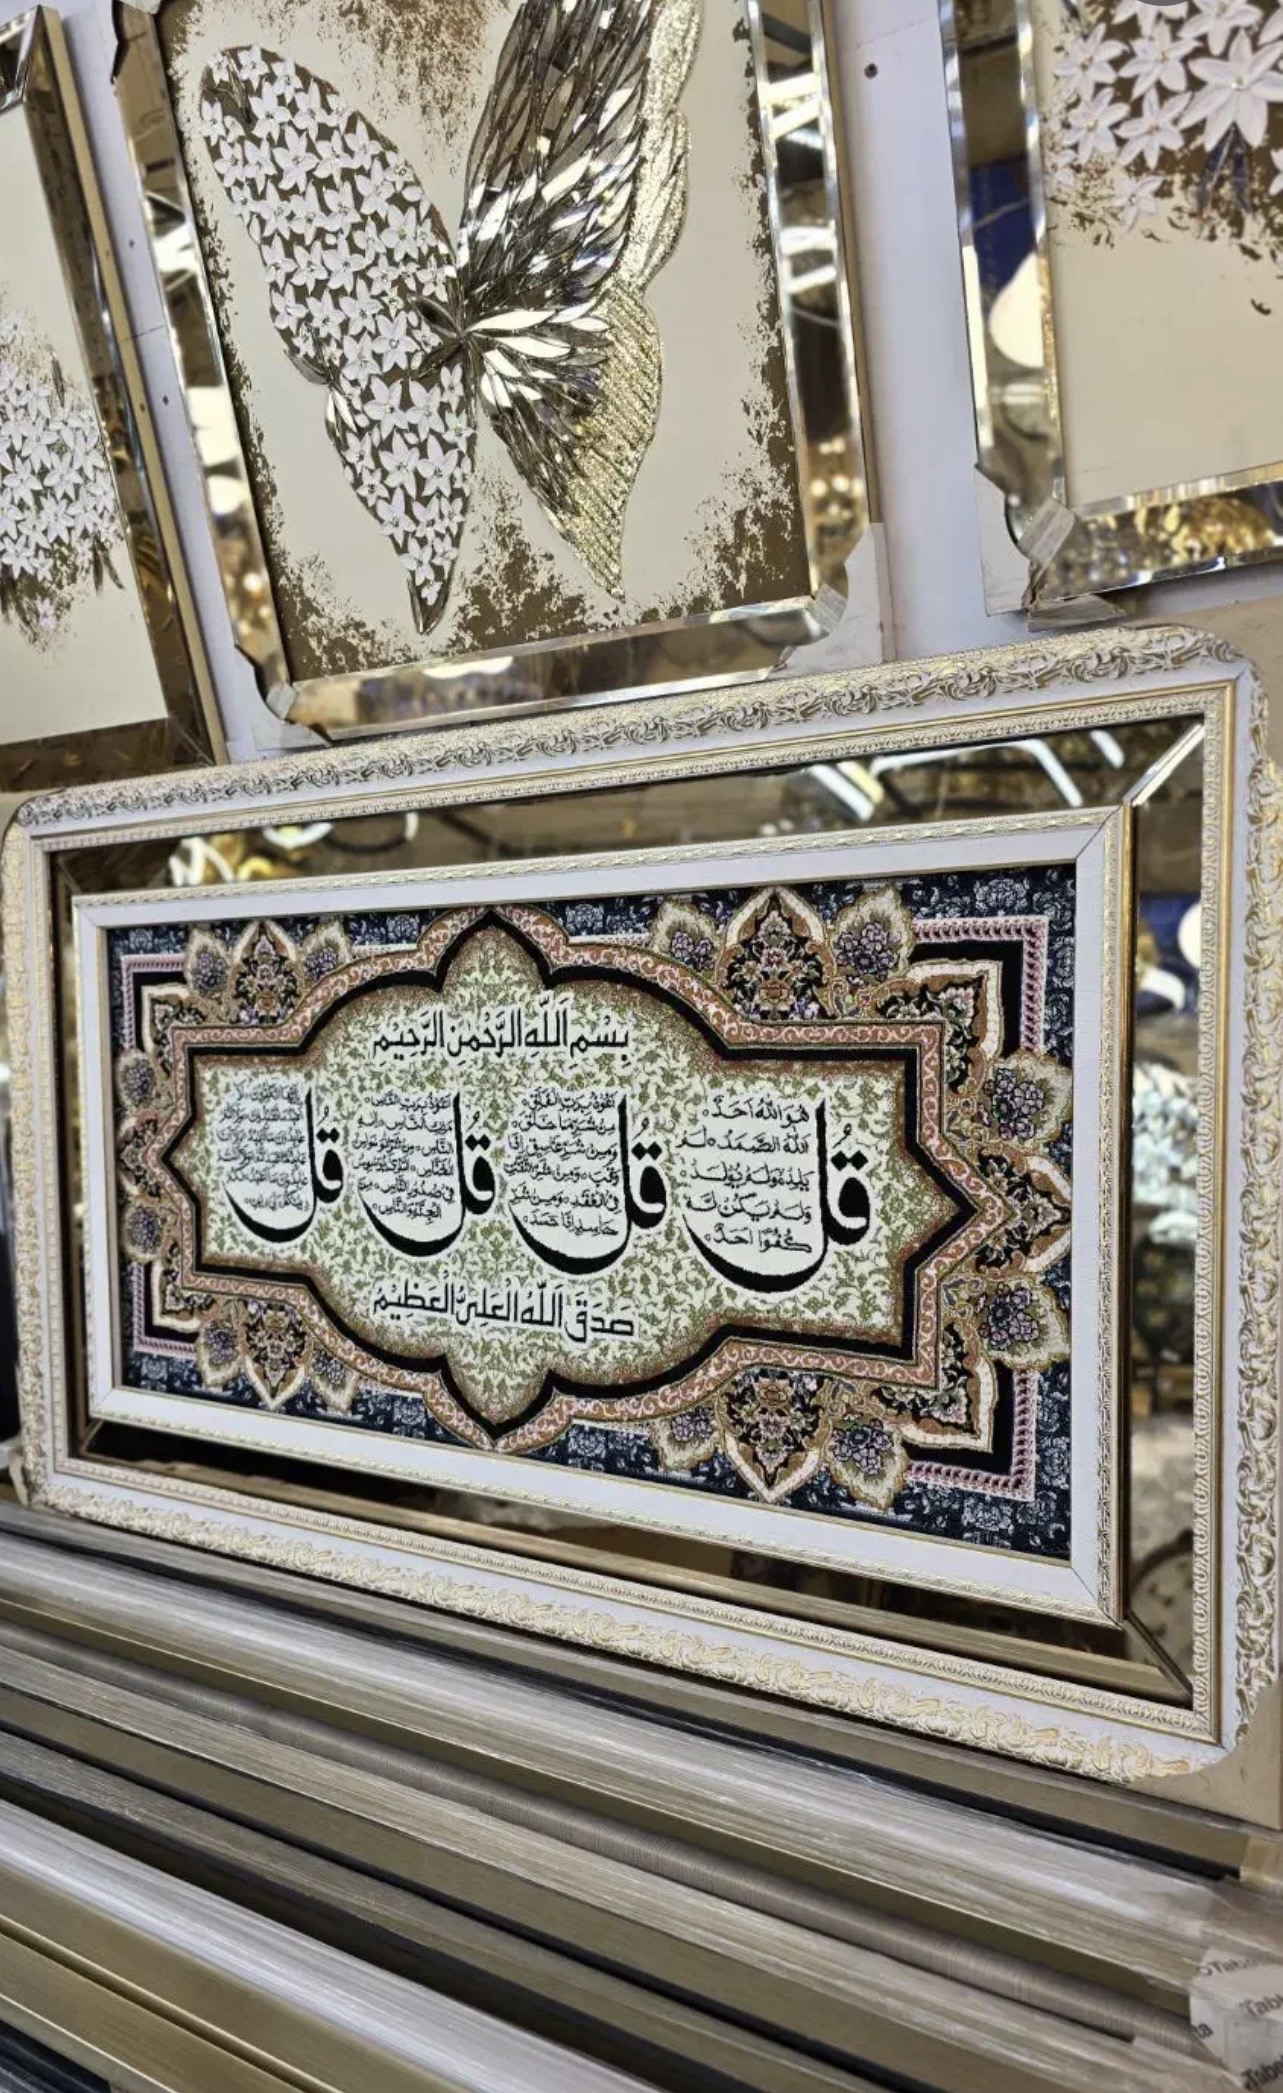 بِسْمِ اللهِ الرَّحْمٰنِ الرَّحِيْمِ
قُل
هُوَ اللهُ اَحَدٌ
اَللهُ الصَّمَدُ لَمْ
يَلِدْ وَلَمْ يُوْلَدْ
وَلَمْ يَكُنْ لَهُ
كُفُوًا اَحَدٌ
قُل
اَعُوْذُ بِرَبِّ الْفَلَقِ
مِنْ شَرِّ مَا خَلَقَ
وَمِنْ شَرِّ غَاسِقٍ اِذَا
وَقَبَ وَمِنْ شَرِّ النَّفّٰثٰتِ
فِى الْعُقَدِ وَمِنْ شَرِّ
حَاسِدٍ اِذَا حَسَدَ
قُل
اَعُوْذُ بِرَبِّ النَّاسِ
مَلِكِ النَّاسِ اِلٰهِ
النَّاسِ مِنْ شَرِّ الْوَسْوَاسِ
الْخَنَّاسِ الَّذِى يُوَسْوِسُ
فِى صُدُوْرِ النَّاسِ مِنَ
الْجِنَّةِ وَالنَّاسِ
قُل
صَدَقَ اللهُ الْعَلِىُّ الْعَظِيْمُ